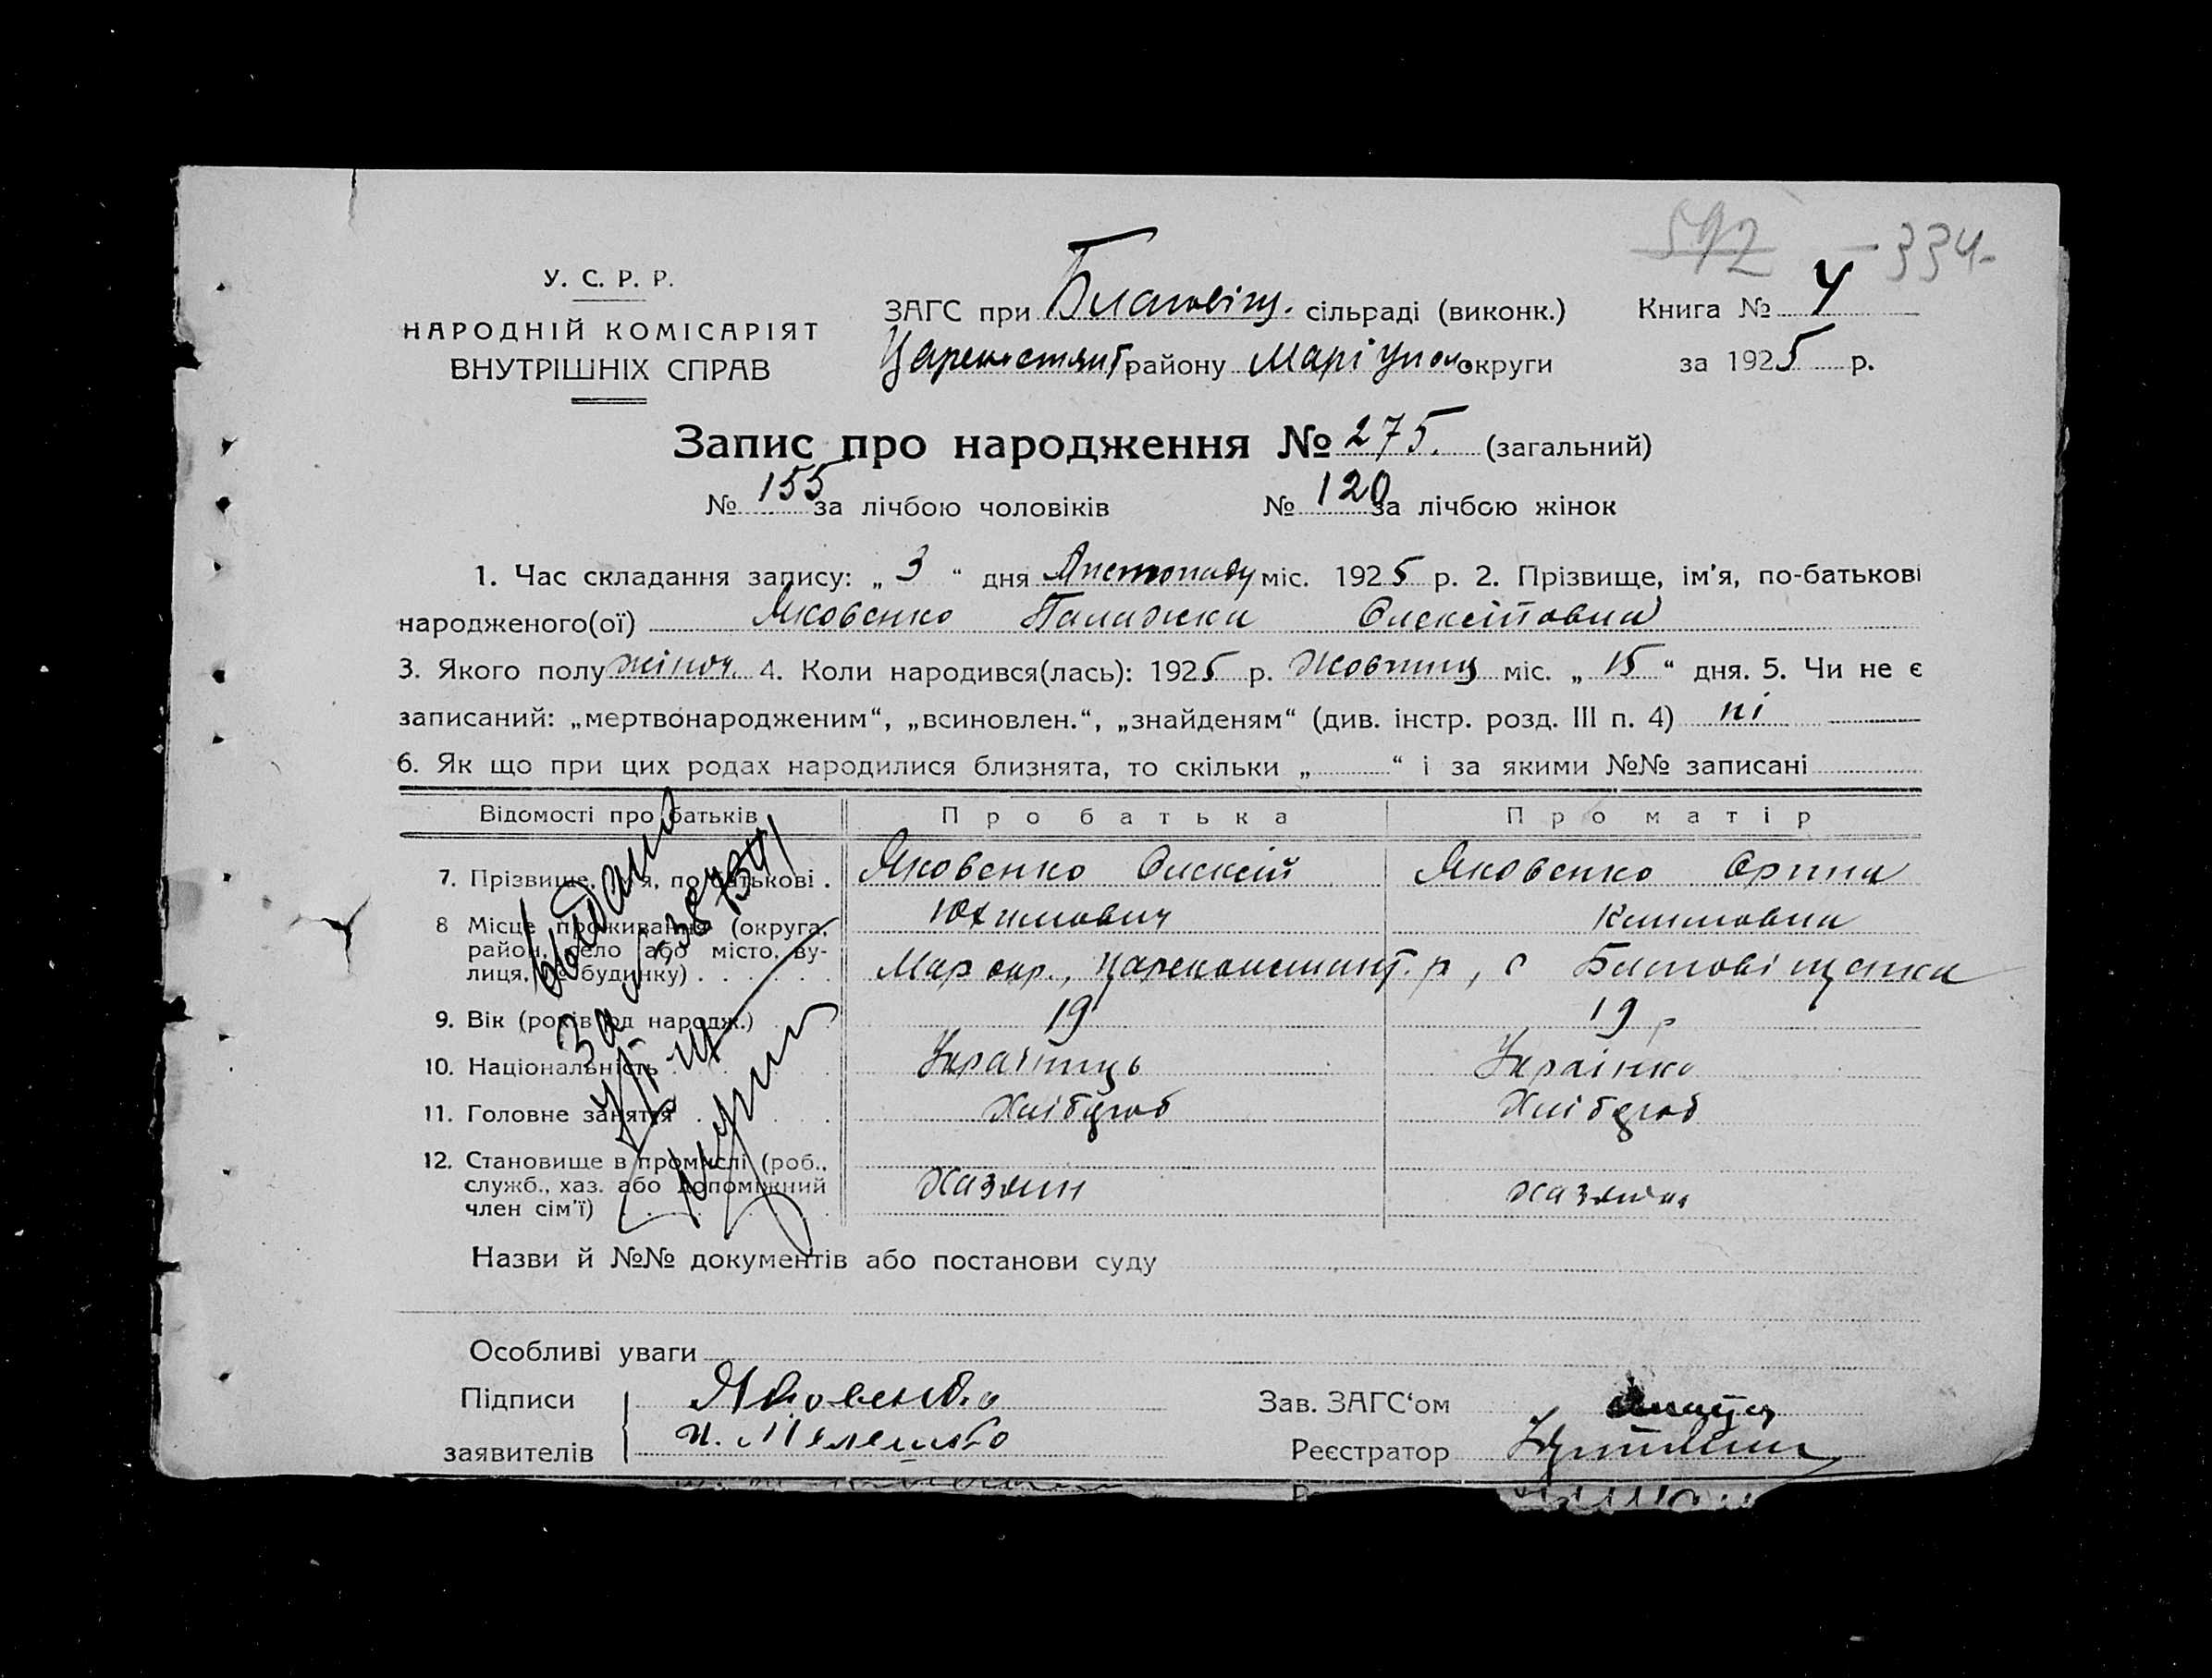 592 — 334
У. С. Р. Р.
НАРОДНІЙ КОМІСАРІЯТ
ВНУТРІШНІХ СПРАВ
ЗАГС при Благовіщ. сільраді (виконк.) Книга № 4
Царекостянт. району Маріупол. округи за 1925 р.
Запис про народження № 275. (загальний)
№ 155 за лічбою чоловіків № 120 за лічбою жінок
1. Час складання запису: „ 3 “ дня Листопаду міс. 1925 р. 2. Прізвище, ім'я, по-батькові
народженого(ої) Яковенко Палажка Олексіївна
3. Якого полу жіноч. 4. Коли народився(лась): 1925 р. Жовтня міс. „ 15 “ дня. 5. Чи не є
записаний: „мертвонародженим“, „всиновлен.“, „знайденям“ (див. інстр. розд. III п. 4) ні
6. Як що при цих родах народилися близнята, то скільки „ “ і за якими №№ записані
Відомості про батьків Про батька Про матір
7. Прізвище, ім'я, по-батькові . Яковенко Олексій Яковенко Орина
Юхимович Климовна
8 Місце проживання (округа, район, село або місто, вулиця, № будинку) . . . . . . Мар окр., Царекон­стант. р, с Благовіщенка
9. Вік (років од народж.) . . 19 19 р
10. Національність . . . Українець Українка
11. Головне заняття . . . Хлібороб Хлібороб
12. Становище в промислі (роб., служб., хаз. або допоміжний член сім'ї) Хазяин хазяйка
Видано
За №
Назви й №№ документів або постанови суду
Особливі уваги
Підписи Яковенко Зав. ЗАГС‘ом
заявителів Реєстратор